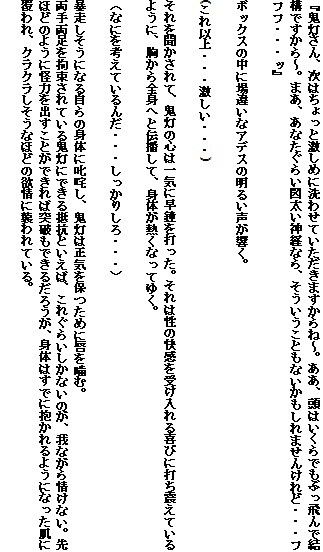 『鬼灯さん、次はちょっと激しめに洗わせていただきますからね～。ああ、頭はいくらでもぶっ飛んで結
構ですから～。まあ、あなたぐらい図太い神経なら、そういうこともないかもしれませんけれど・・・フ
フフ・・・ッ』
ボックスの中に場違いなアデスの明るい声が響く。
(これ以上・・・激しい・・・・)
それを聞かされて、鬼灯の心は一気に早鐘を打った。それは性の快感を受け入れる喜びに打ち震えている
ように、胸から全身へと伝播して、身体が熱くなってゆく。
(なにを考えているんだ・・・しっかりしろ・・・・)
暴走しそうになる自らの身体に叱咤し、鬼灯は正気を保つために唇を噛む。
両手両足を拘束されている鬼灯にできる抵抗といえば、これぐらいしかないのが、我ながら情けない。先
ほどのように怪力を出すことができれば突破もできるだろうが、身体はすでに抱かれるようになった肌に
覆われ、クラクラしそうなほどの欲情に襲われている。